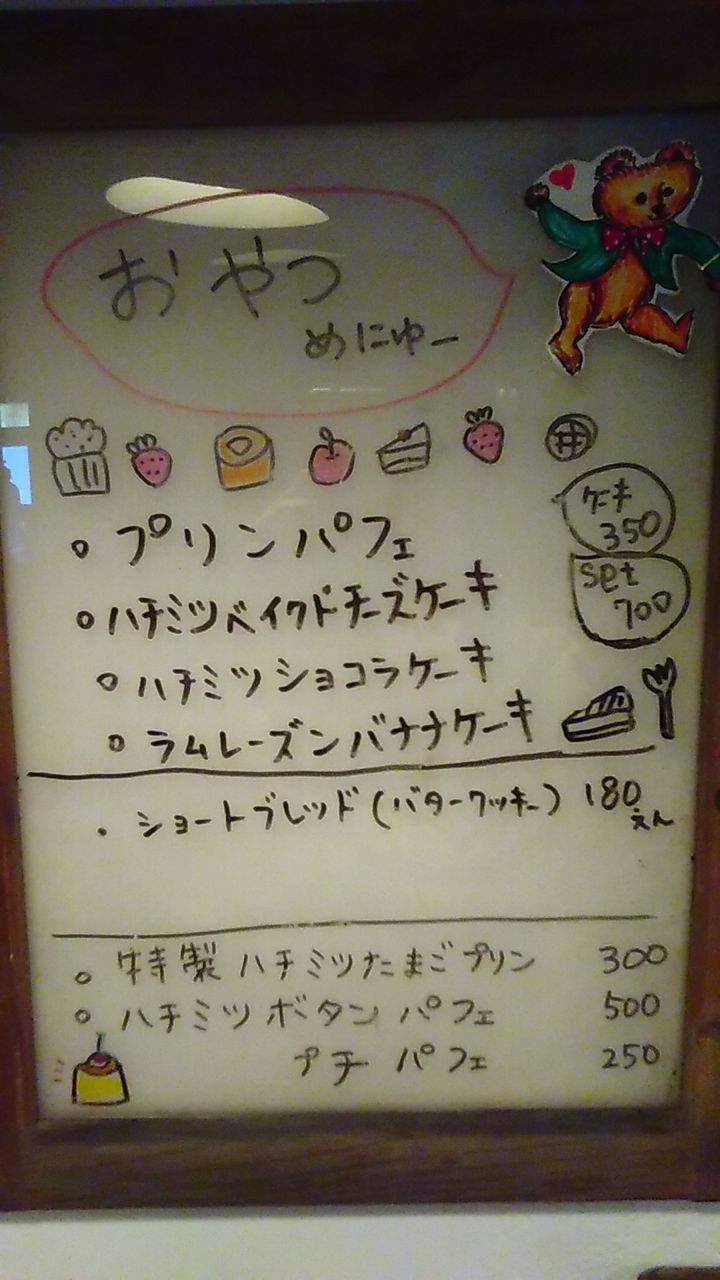 おやつ
めにゅー
ケーキ
350
set
700
○ プリンパフェ
○ ハチミツベイクドチーズケーキ
○ ハチミツショコラケーキ
○ ラムレーズンバナナケーキ
・ショートブレッド(バタークッキー) 180えん
○ 特製ハチミツたまごプリン 300
○ ハチミツボタンパフェ 500
プチパフェ 250